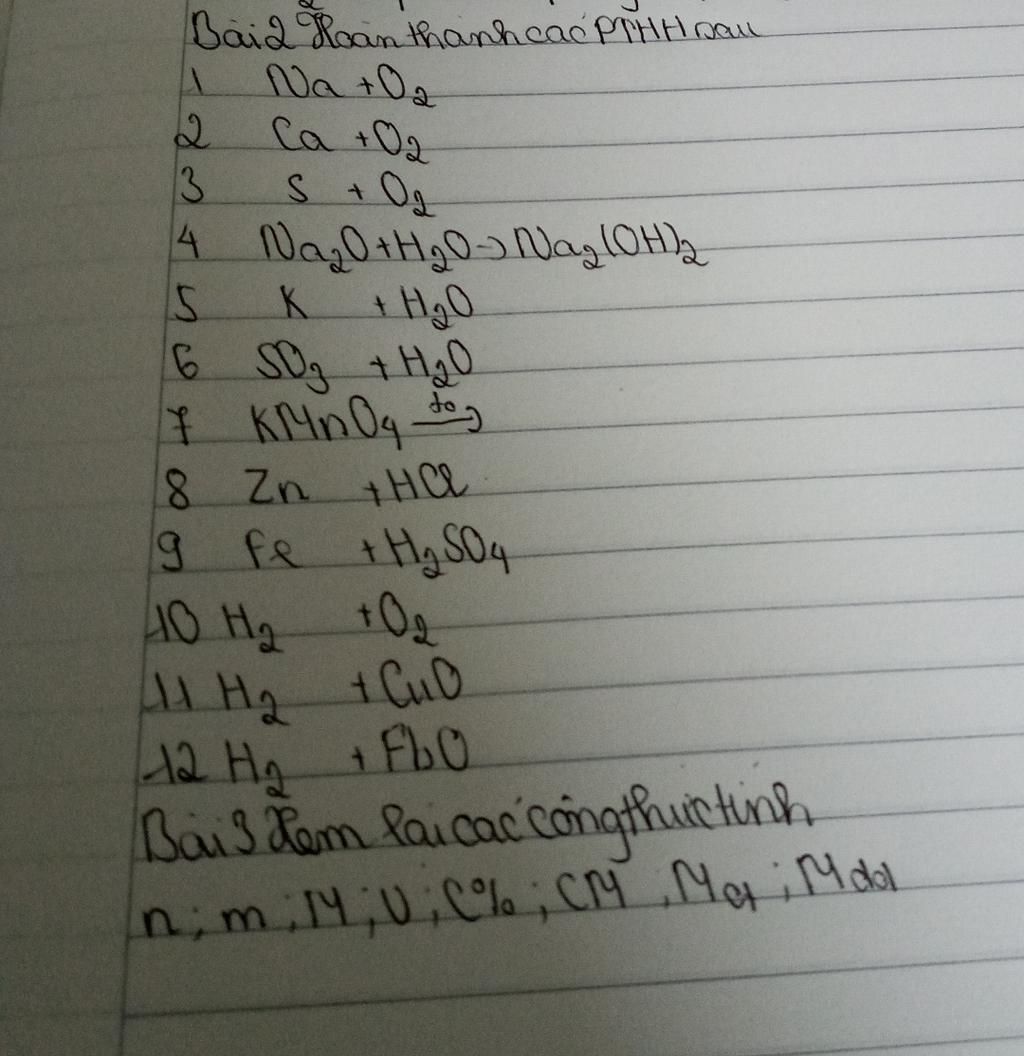 Bài 2 Hoàn thành các PTHH sau
1 Na + O2
2 Ca + O2
3 S + O2
4 Na2O + H2O → Na2(OH)2
5 K + H2O
6 SO3 + H2O
7 KMnO4 to→
8 Zn + HCl
9 Fe + H2SO4
10 H2 + O2
11 H2 + CuO
12 H2 + FbO
Bài 3 Xem lại các công thức tính
n; m; M; V; C%; CM; Mct; Mdd